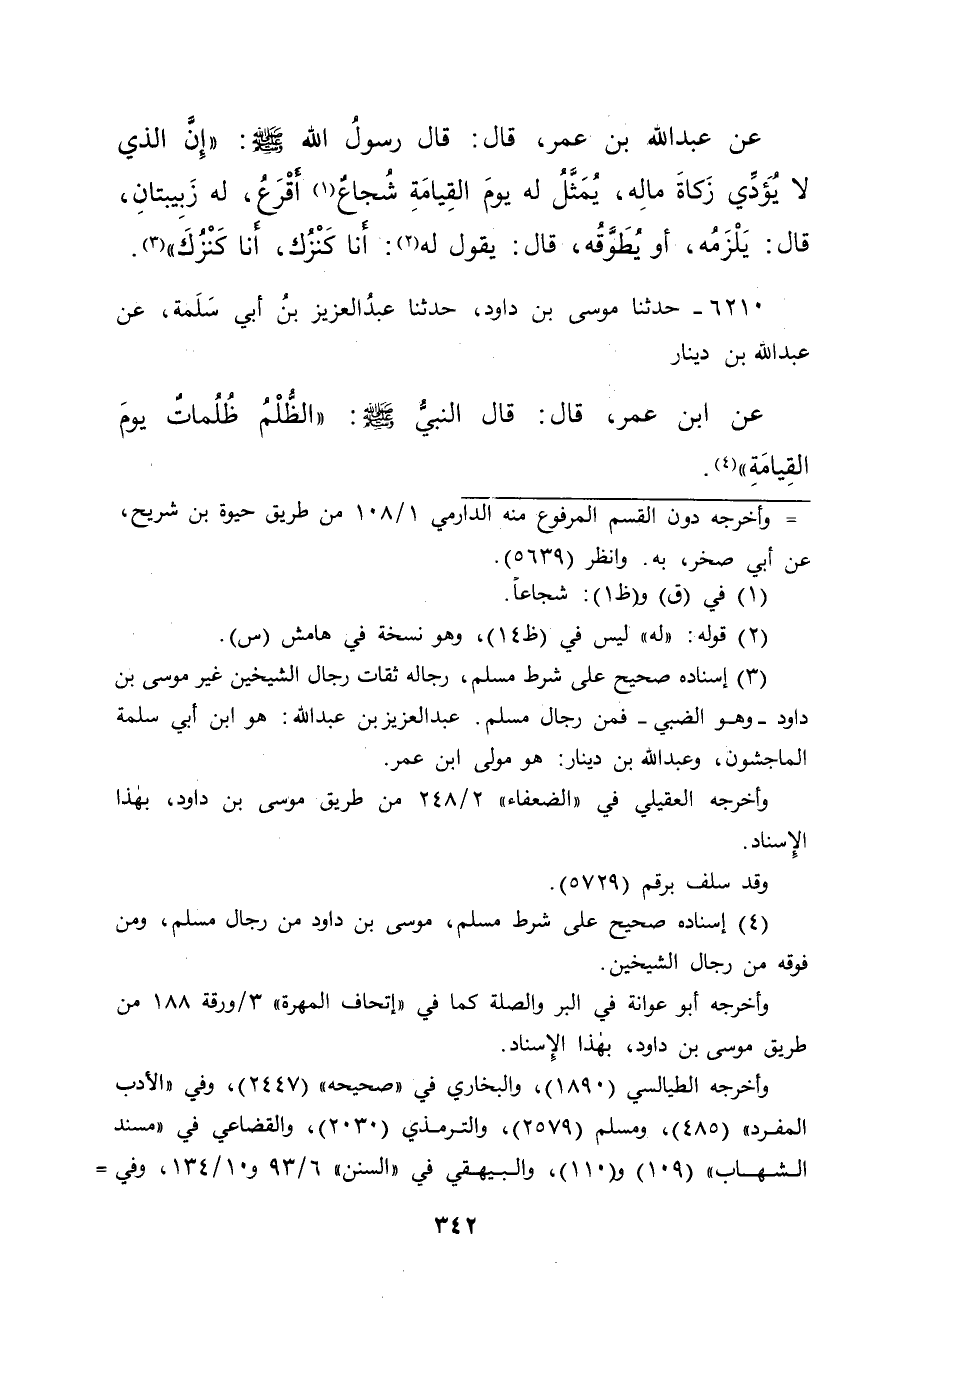 عن عبدالله بن عمر، قال: قال رسولُ الله ﷺ: «إِنَّ الذي
لا يُؤَدِّي زَكاةَ مالِه، يُمَثَّلُ له يومَ القِيامَةِ شُجاعٌ(١) أَقْرَعُ، له زَبِيبتانِ،
قال: يَلْزَمُه، أو يُطَوَّقُه، قال: يقول له(٢): أَنا كَنْزُك، أَنا كَنْزُكَ»(٣).
٦٢١٠ ـ حدثنا موسى بن داود، حدثنا عبدُالعزيز بنُ أبي سَلَمة، عن
عبدالله بن دينار
عن ابن عمر، قال: قال النبيُّ ﷺ: «الظُّلْمُ ظُلُماتٌ يومَ
القِيامَةِ»(٤).
= وأخرجه دون القسم المرفوع منه الدارمي ١٠٨/١ من طريق حيوة بن شريح،
عن أبي صخر، به. وانظر (٥٦٣٩).
(١) في (ق) و(ظ١): شجاعاً.
(٢) قوله: «له» ليس في (ظ١٤)، وهو نسخة في هامش (س).
(٣) إسناده صحيح على شرط مسلم، رجاله ثقات رجال الشيخين غير موسى بن
داود ـ وهو الضبي ـ فمن رجال مسلم. عبدالعزيز بن عبدالله: هو ابن أبي سلمة
الماجشون، وعبدالله بن دينار: هو مولى ابن عمر.
وأخرجه العقيلي في «الضعفاء» ٢٤٨/٢ من طريق موسى بن داود، بهٰذا
الإِسناد.
وقد سلف برقم (٥٧٢٩).
(٤) إسناده صحيح على شرط مسلم، موسى بن داود من رجال مسلم، ومن
فوقه من رجال الشيخين.
وأخرجه أبو عوانة في البر والصلة كما في «إتحاف المهرة» ٣/ورقة ١٨٨ من
طريق موسى بن داود، بهٰذا الإِسناد.
وأخرجه الطيالسي (١٨٩٠)، والبخاري في «صحيحه» (٢٤٤٧)، وفي «الأدب
المفرد» (٤٨٥)، ومسلم (٢٥٧٩)، والترمذي (٢٠٣٠)، والقضاعي في «مسند
الشهاب» (١٠٩) و(١١٠)، والبيهقي في «السنن» ٩٣/٦ و١٣٤/١٠، وفي =
٣٤٢